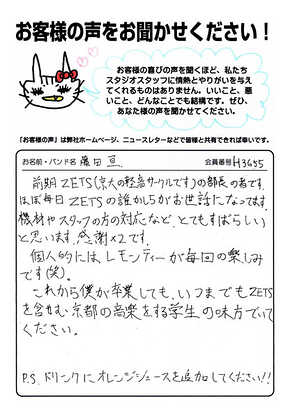 お客様の声をお聞かせください!
お客様の喜びの声を聞くほど、私たち
スタジオスタッフに情熱とやりがいを与え
てくれるものはありません。いいこと、悪
いこと、どんなことでも結構です。ぜひ、
あなた様の声を聞かせてください。
「お客様の声」は弊社ホームページ、ニュースレターなどで皆様と共有できれば幸いです。
お名前・バンド名 藤田亘 会員番号 H3655
前期ZETS(京大の軽音サークルです)の部長の者です。
ほぼ毎日ZETSの誰かしらがお世話になってます。
機材やスタッフの方の対応など、とてもすばらしい
と思います。感謝×2です。
個人的には、レモンティーが毎回の楽しみ
です(笑)。
これから僕が卒業しても、いつまでもZETS
を含む、京都の音楽をする学生の味方でいて
ください。
P.S. ドリンクにオレンジジュースを追加してください!!